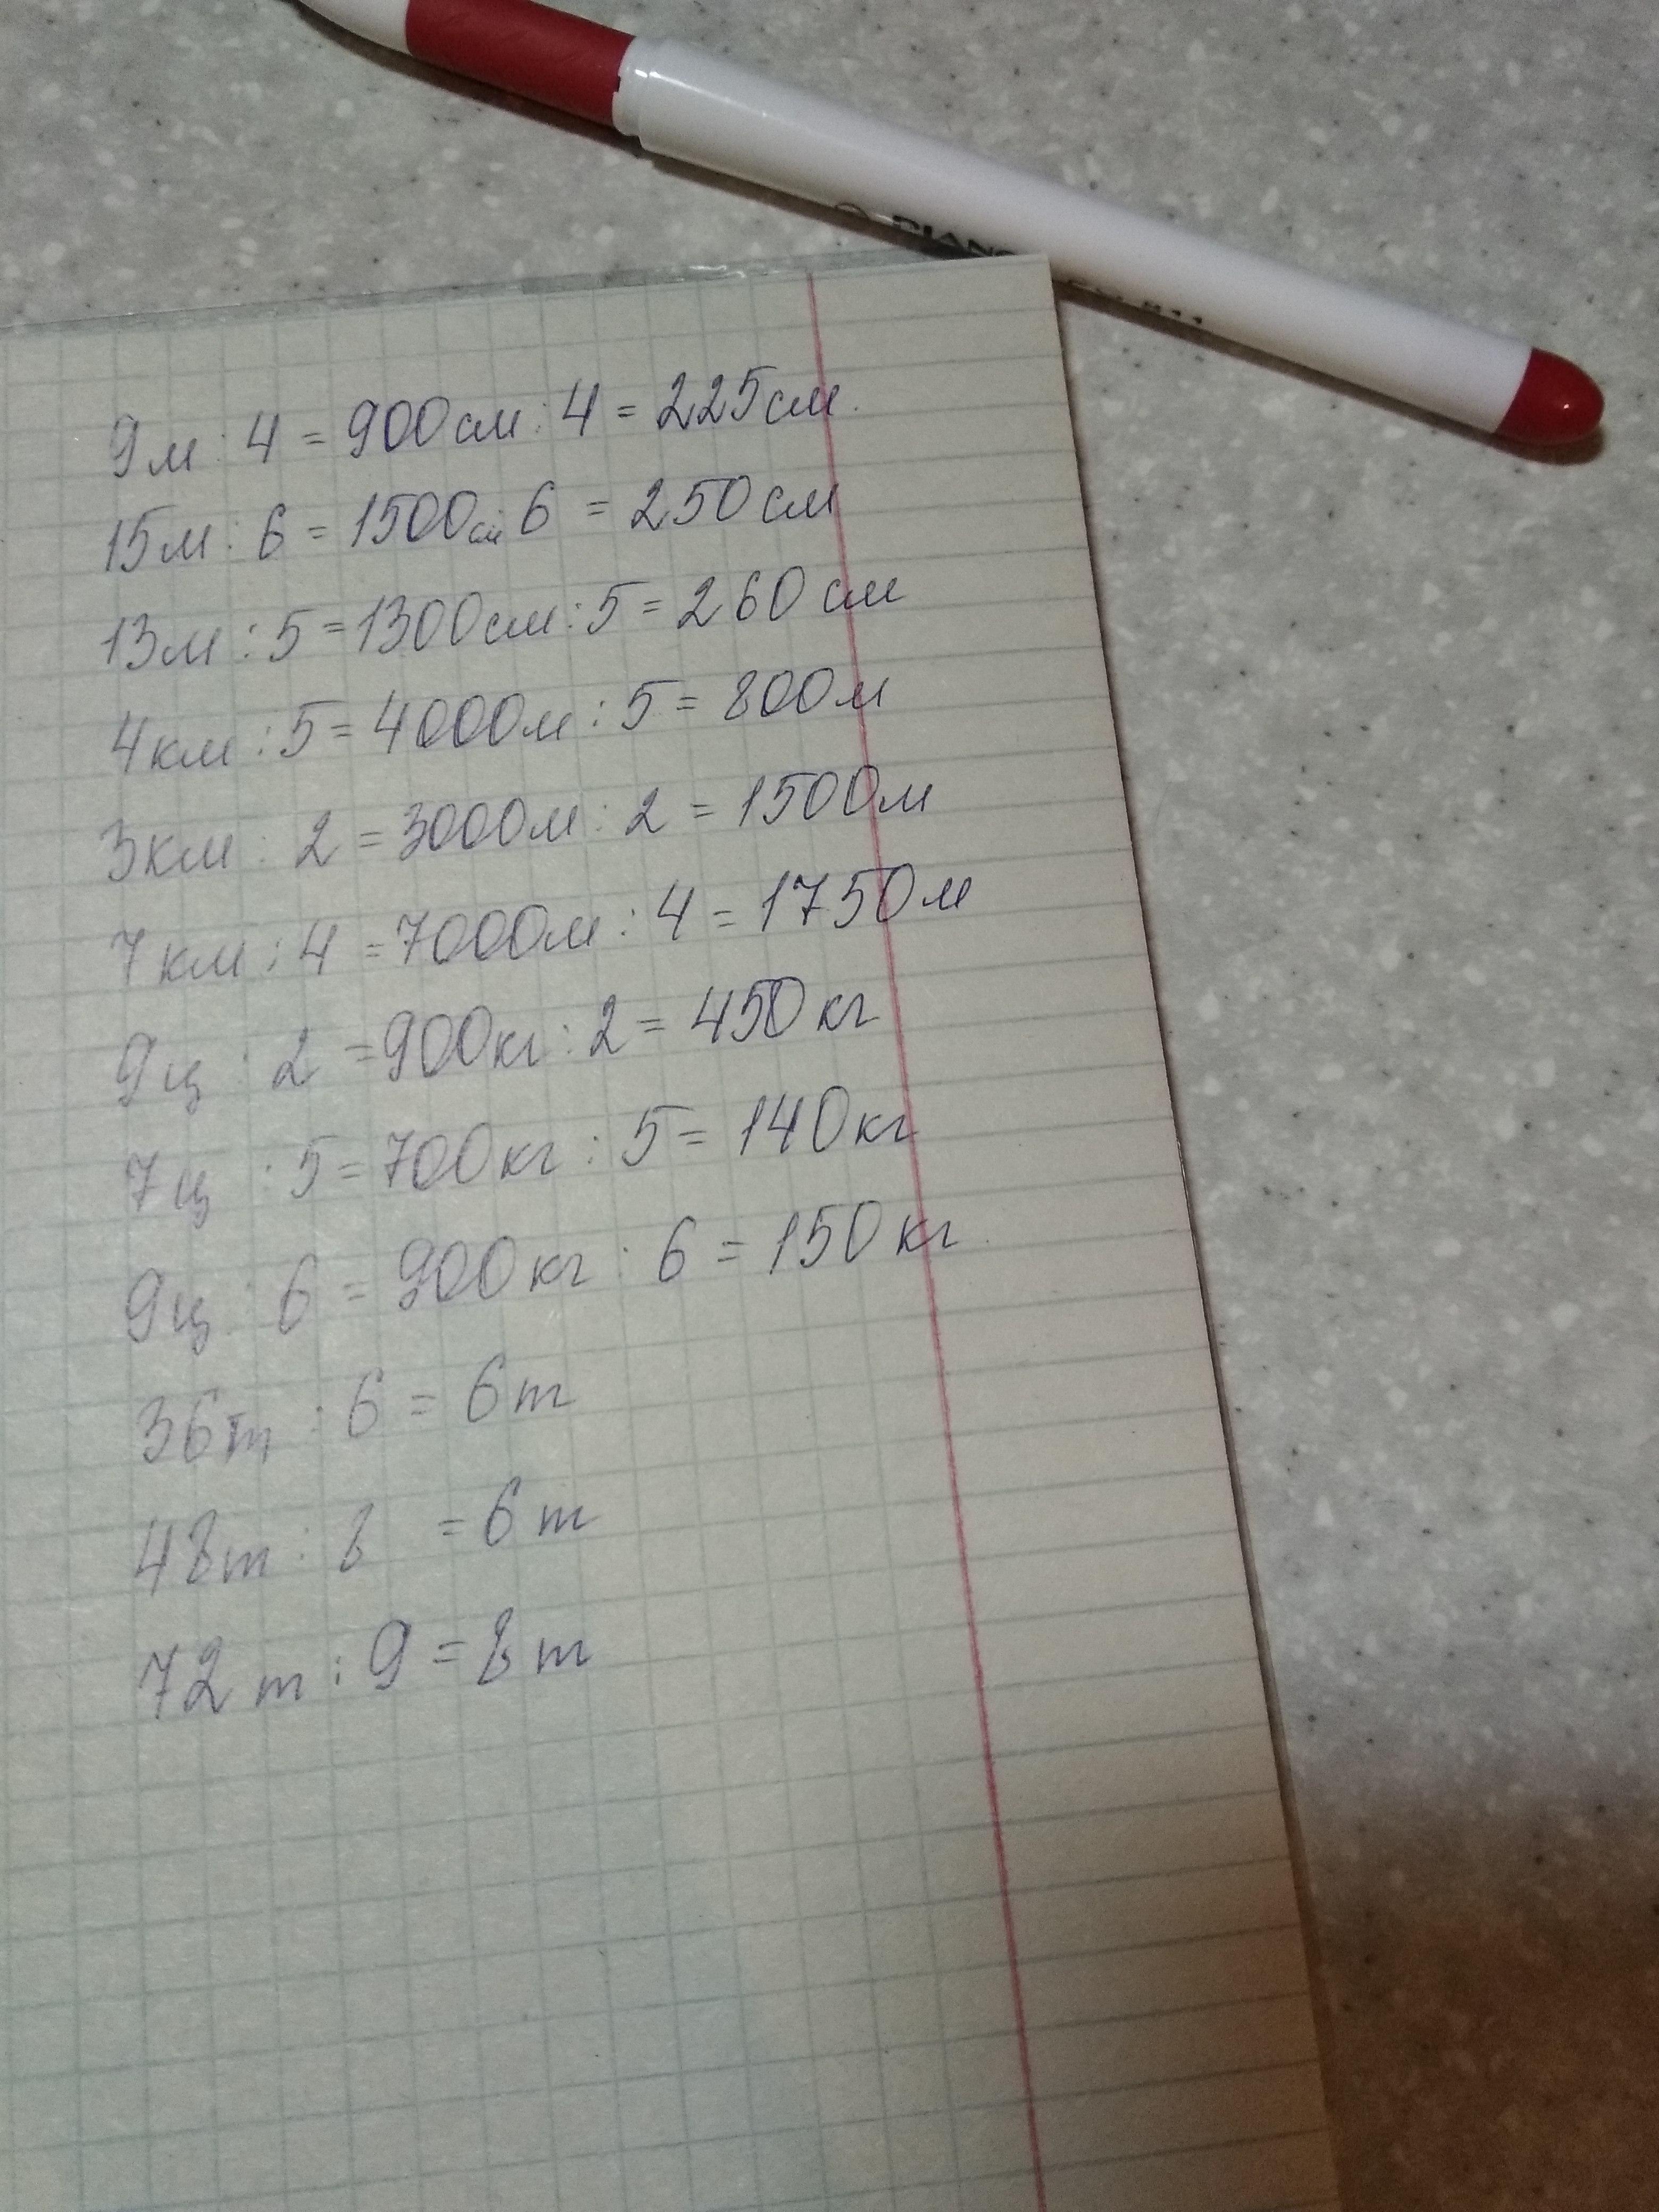 9м : 4 = 900см : 4 = 225см.
15м : 6 = 1500см : 6 = 250см
13м : 5 = 1300см : 5 = 260см
4км : 5 = 4000м : 5 = 800м
3км : 2 = 3000м : 2 = 1500м
7км : 4 = 7000м : 4 = 1750м
9ц : 2 = 900кг : 2 = 450кг
7ц : 5 = 700кг : 5 = 140кг
9ц : 6 = 900кг : 6 = 150кг.
36т : 6 = 6т
48т : 8 = 6т
72т : 9 = 8т